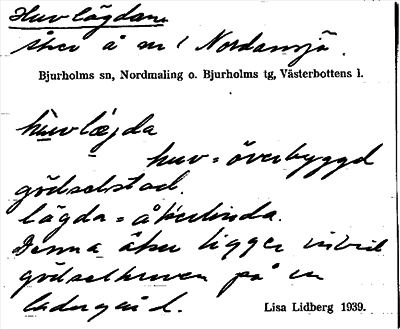 Huvlägdan
åker å nr 1 Nordansjö.
Bjurholms sn, Nordmaling o. Bjurholms tg, Västerbottens l.
huvlægda
huv = överbyggd
gödselstad.
lägda = åkerlinda.
Denna åker ligger invid
gödselhuven på en
ladugård.
Lisa Lidberg 1939.